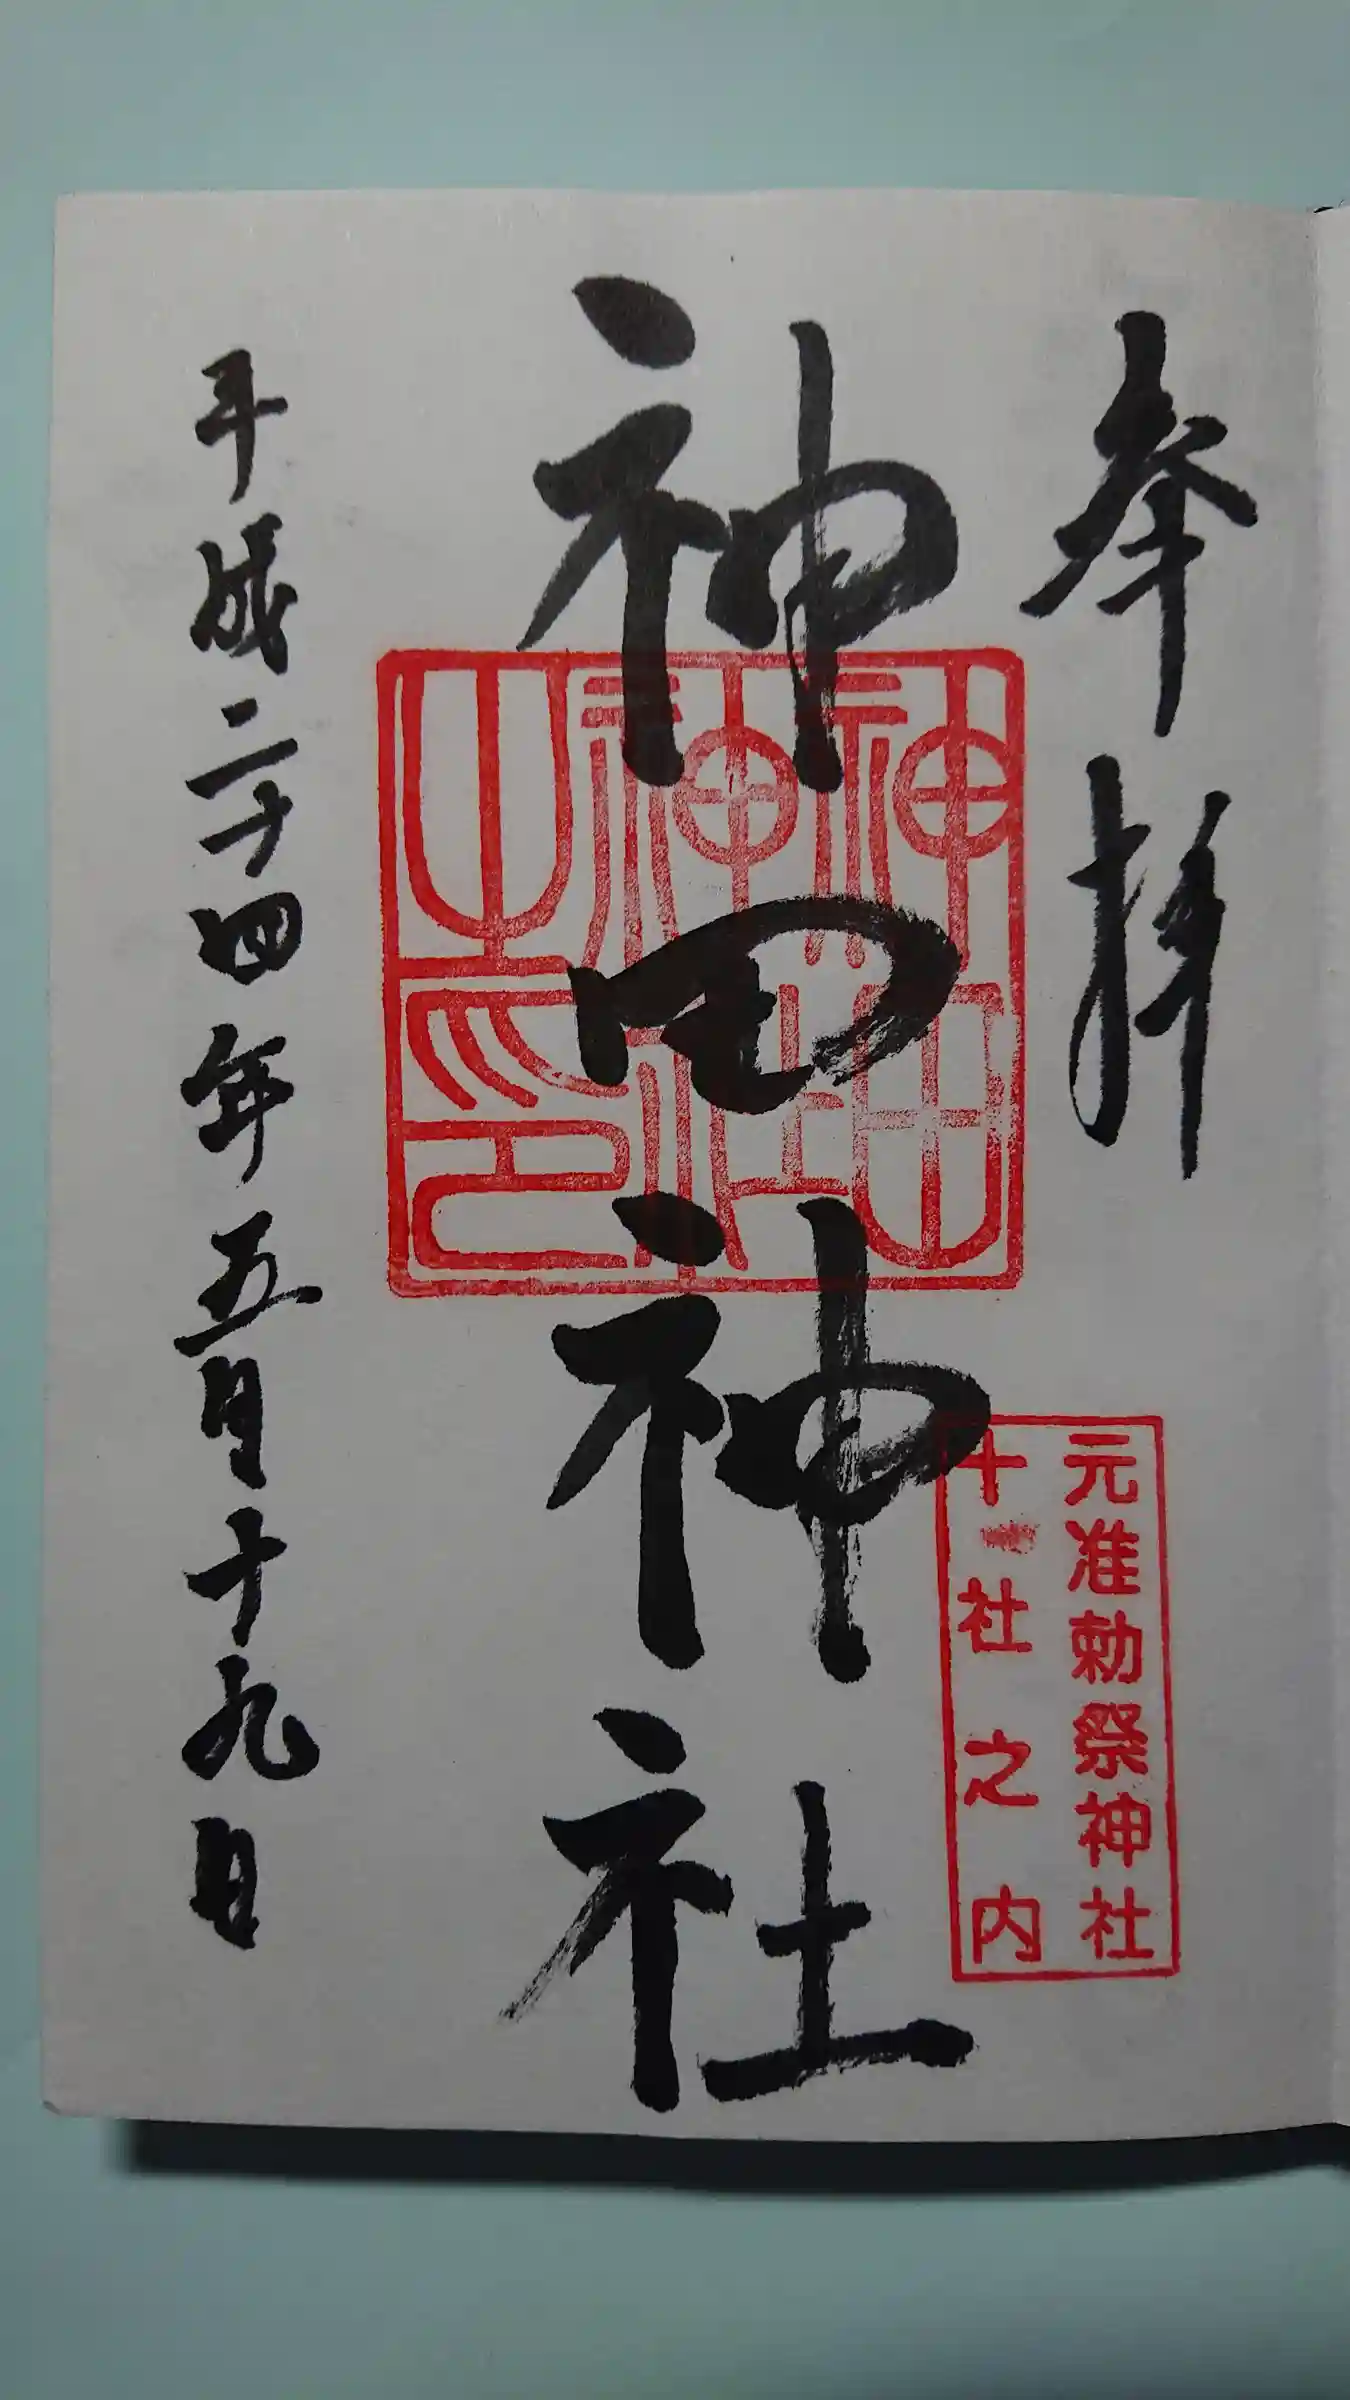 奉拝
元准勅祭神社
十社之内
神田神社
神田神社之印
平成二十四年五月十九日